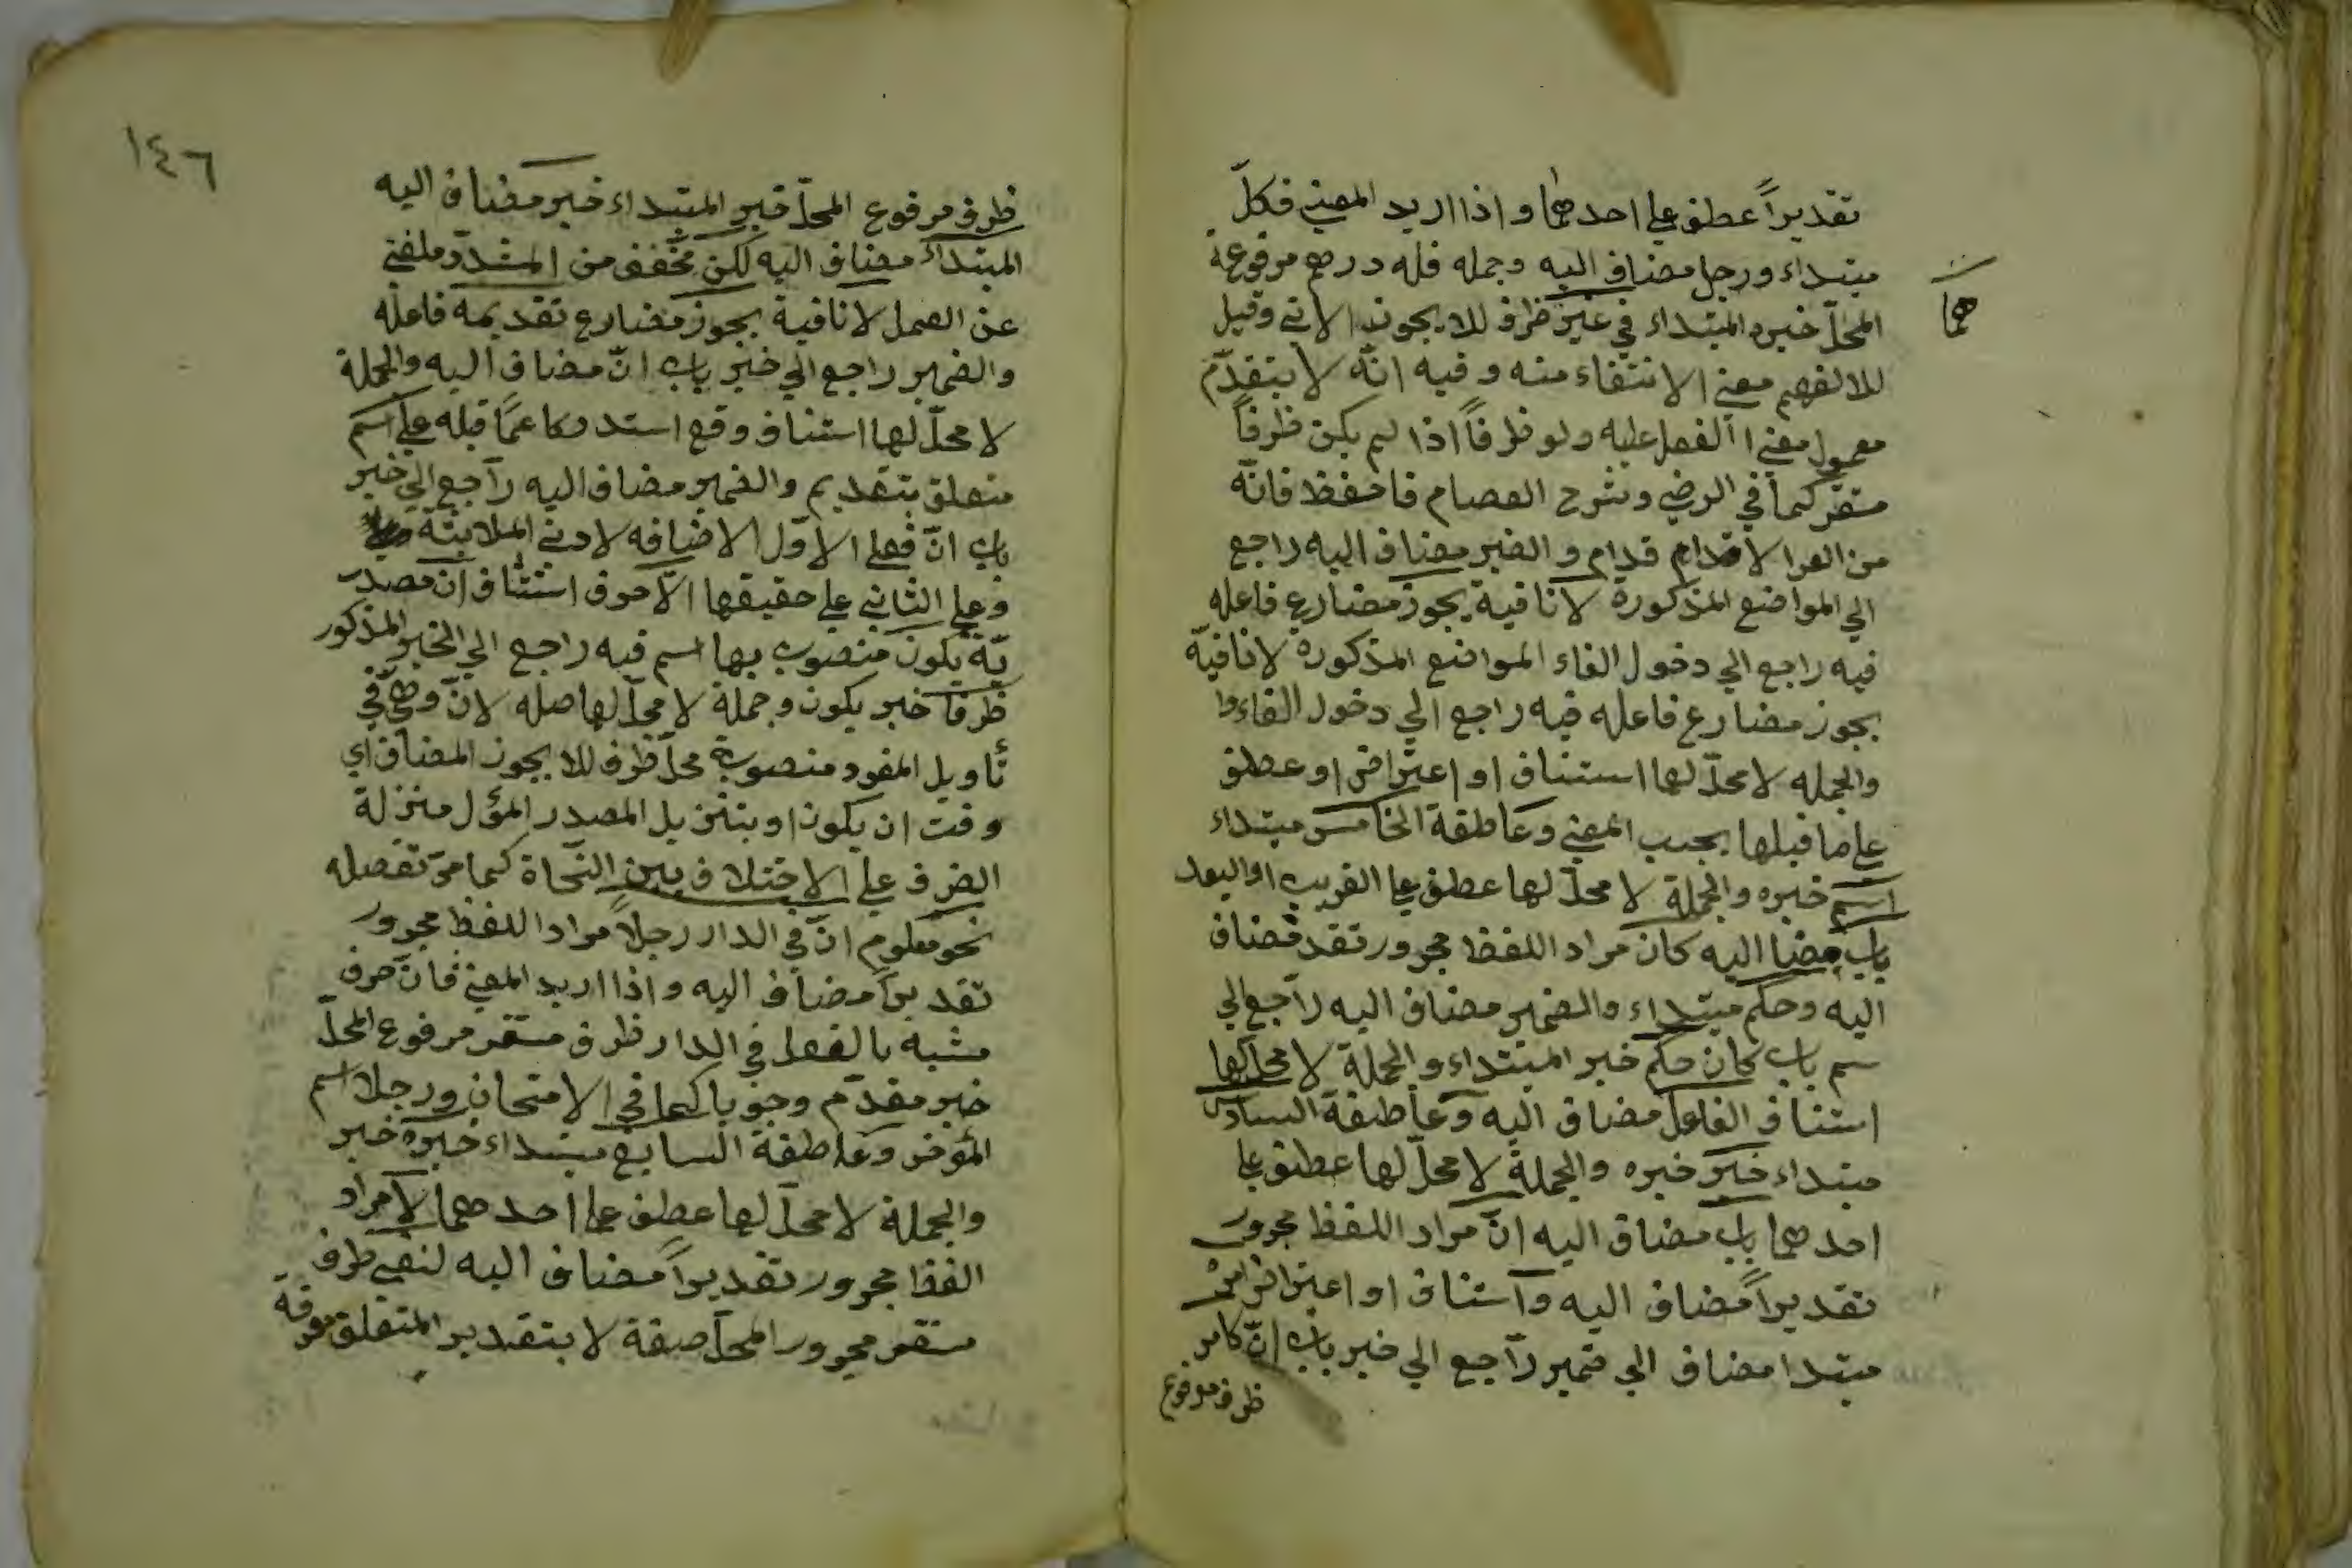 تقديراً عطف علي احدهما واذا اريد المعني فكلّ
مبتداء ورجل مضاف اليه وجمله فله درهم مرفوعة
هما
المحلّ خبره المبتداء في غير ظرف للا يجوز الاتي وقيل
للا لفهم معني الانتفاء منه وفيه انّه لا يتقدّم
معمول معني الفعل عليه ولو ظرفاً اذا لم يكن ظرفاً
مستقر كما في الرضي وشرح العصام فاحفظ فانّه
من الاقدام قدام والضير مضاف اليه راجع
الي المواضع المذكورة لا نافية يجوز مضارع فاعله
فيه راجع الي دخول الفاء المواضع المذكوره لا نافيّة
يجوز مضارع فاعله فيه راجع الي دخول الفاء
والجمله لا محلّ لها استناف او اعتراض او عطف
علي ما قبلها بحسب المعني وعاطفة الخامس مبتداء
اسم خبره والجملة لا محلّ لها عطف علي القريب او البعد
باب مضا اليه كان مراد اللفظ مجرور تقد فضاف
اليه وحكم مبتداء والضمير مضاف اليه راجع الي
سم باب كان حكم خبر المبتداء والجملة لا محلّ لها
استناف الفاعل مضاف اليه وعاطفة السادس
مبتداء خبر خبره والجملة لا محلّ لها عطف علي
احدهما باب مضاف اليه انّ مراد اللفظ مجرور
تقديراً مضاف اليه واستناف او اعتراض امر
مبتدا مضاف الي ضمير راجع الي خبر باب انّ كامر
ظرف مرفوع
١٤٦
ظرف مرفوع المحلّ خبر المبتداء خبر مضاف اليه
المبتداء مضاف اليه لكن مخفف من المشدّد ملغي
عن العمل لا نافية يجوز مضارع تقديمه فاعله
والضمير راجع الي خبر باب انّ مضاف اليه والجملة
لا محلّ لها استناف وقع استدركا عمّا قبله علي اسم
متعلق بتقديم والضمير مضاف اليه راجع الي خبر
باب انّ فعلي الاوّل الاضافه لادني الملابثة
وعلي الثاني علي حقيقها الّا حرف استثناف ان مصدر
يّة يكون منصوب بها اسم فيه راجع الي الخبر المذكور
ظرفا خبر يكون وجملة لا محلّ لها صله لانّ وهي في
تأويل المفرد منصوبة محلّ ظرف للا يجوز المضاف اي
وقت ان يكون او بتنزيل المصدر المؤل منزلة
الضرف علي الاختلاف بين النحاة كما مرّ تفصله
نحو معلوم انّ في الدار رجلاً مراد اللفظ مجرور
تقديراً مضاف اليه واذا اريد المعني فانّ حرف
مشبه بالفعل في الدار ظرف مستقر مرفوع المحلّ
خبر مقدّم وجوبا كما في الامتحان ورجلا اسم
المؤخر وعاطفة السابع مبتداء خبره خبر
والجملة لا محلّ لها عطف علي احدهما لا مراد
الفظ مجرور تقديراً مضاف اليه لنفي ظرف
مستقر مجرور المحلّ صفة لا بتقدير المتعلق معرفة